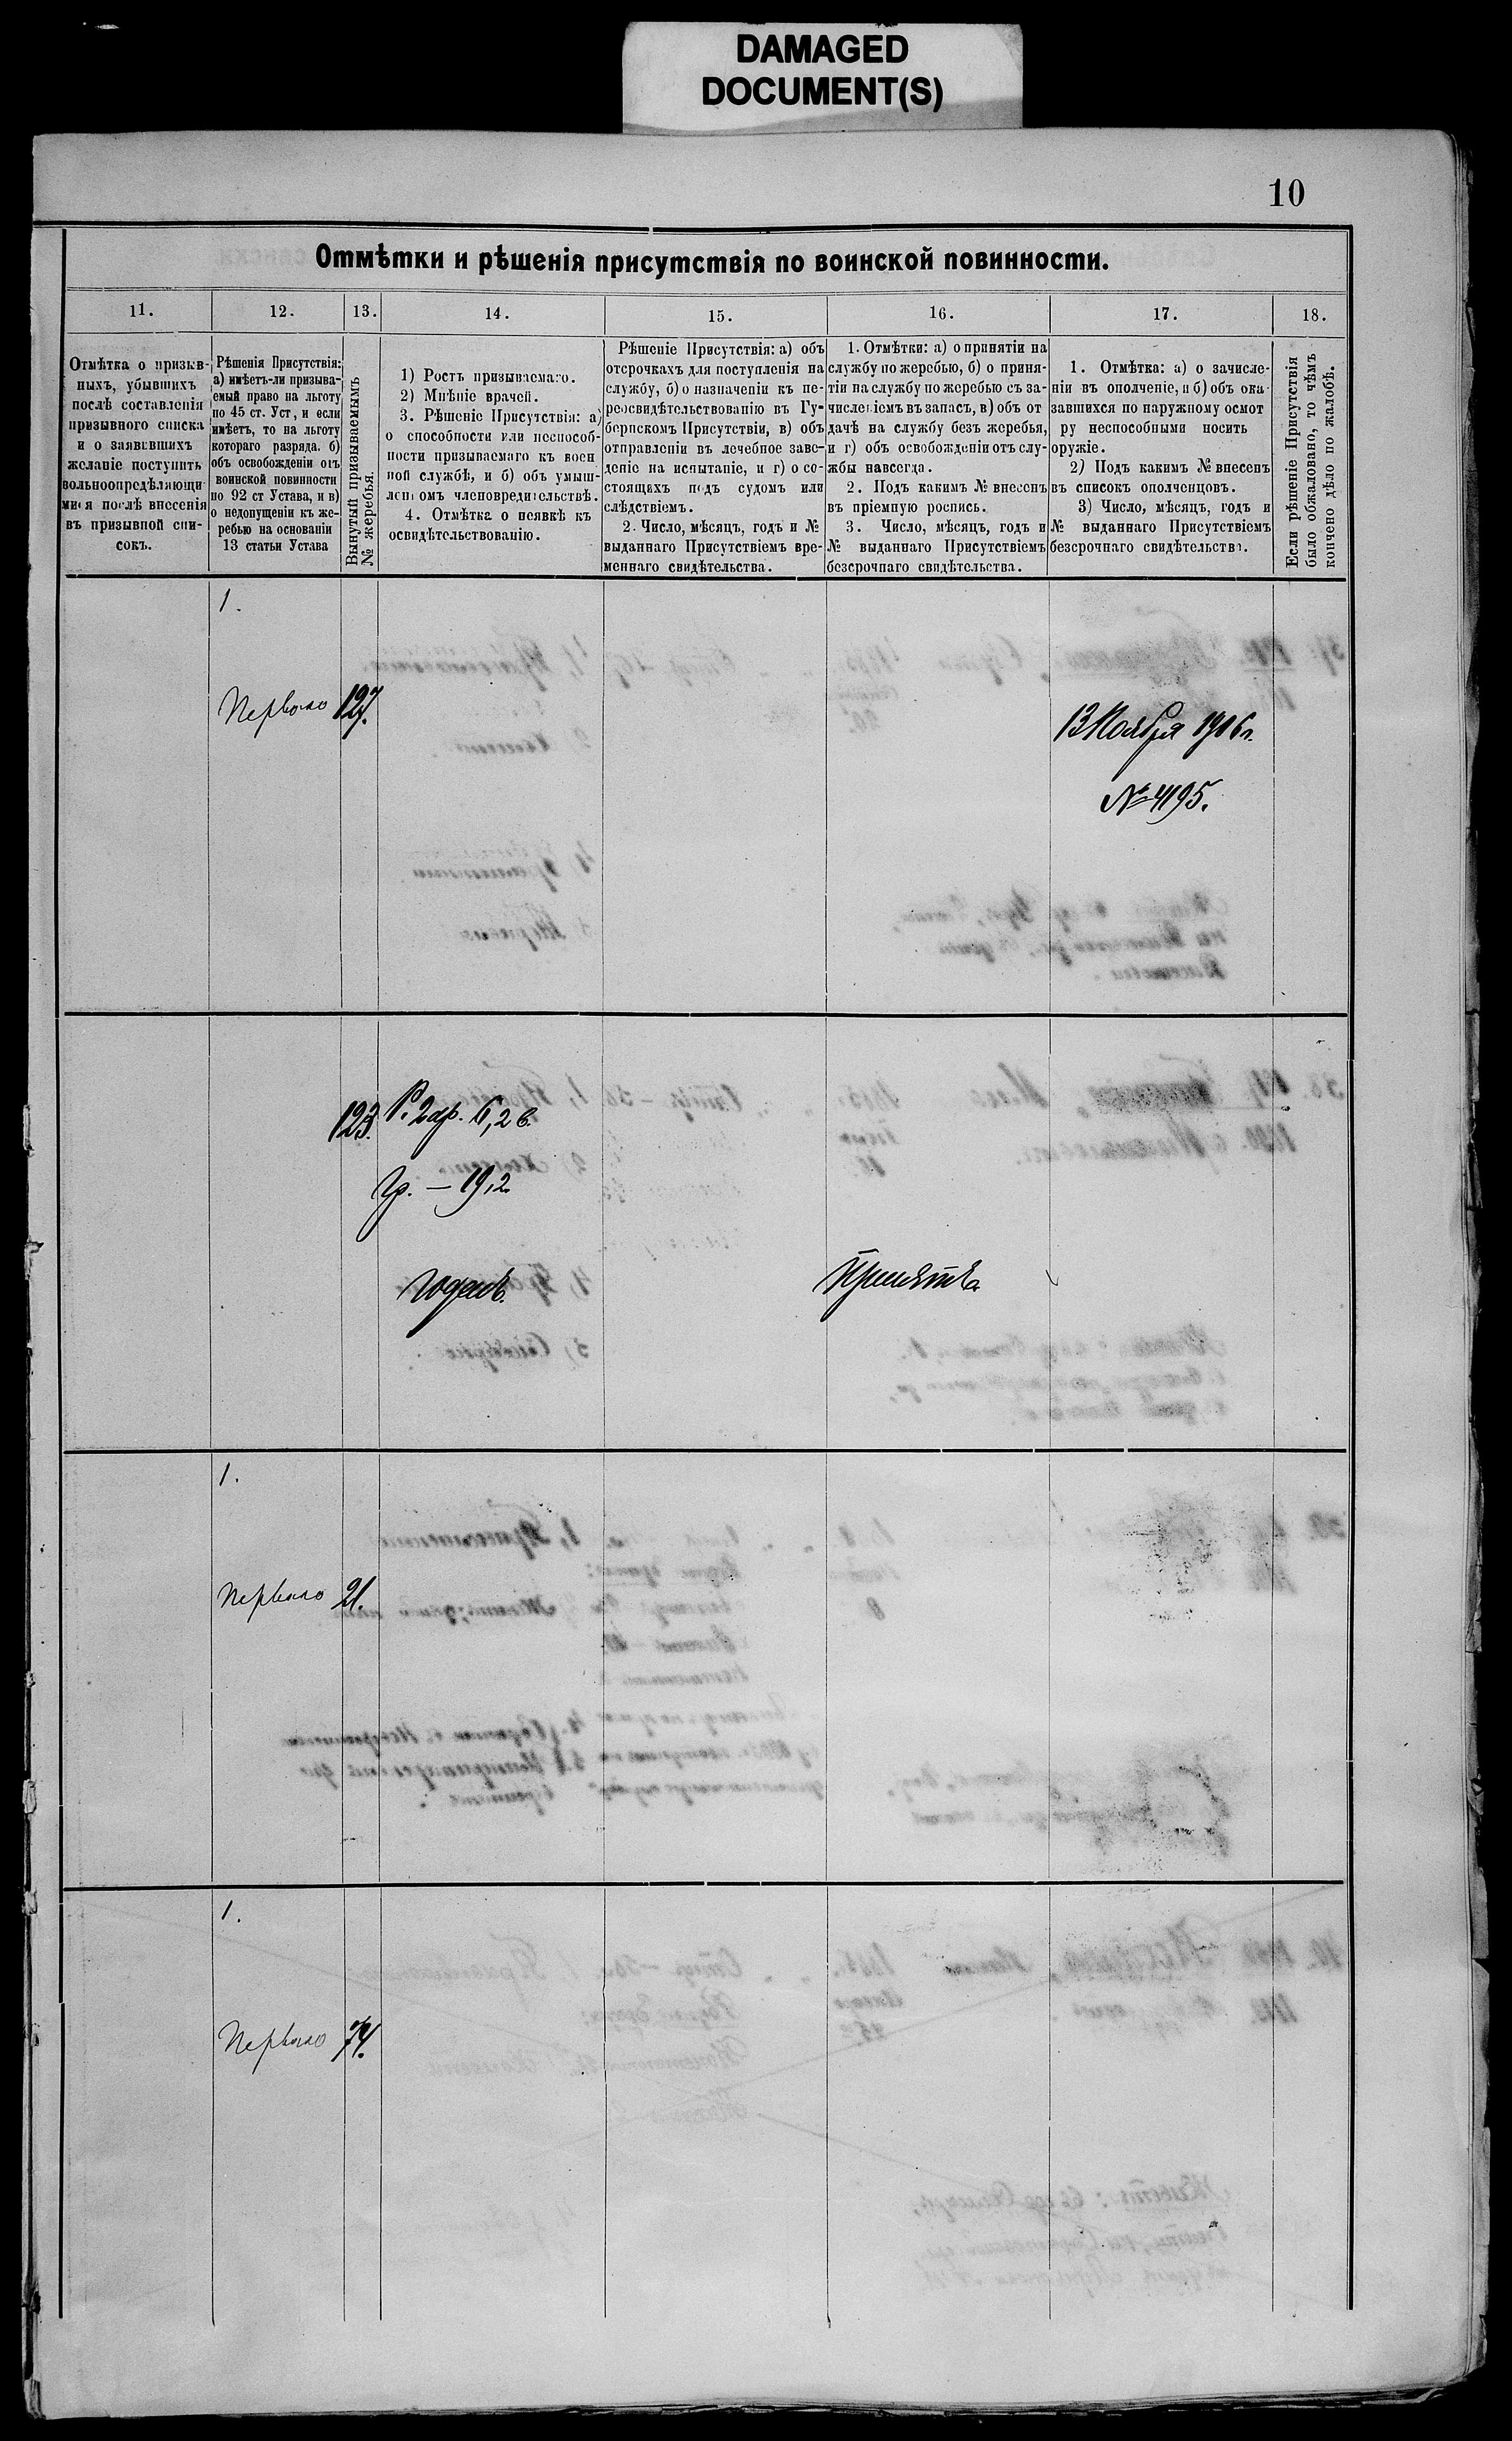 DAMAGED
DOCUMENT(S)
10
Отмѣтки и рѣшенія присутствія по воинской повинности.
11.
12.
13.
14.
15.
16.
17.
18.
Отмѣтка о призыв-
ныхъ, убывшихъ
послѣ составленія
призывного списка
и о заявившихъ
желаніе поступить
вольноопредѣляющи-
мися послѣ внесенія
въ призывной спи-
сокъ.
Рѣшенія Присутствія:
а) имѣетъ-ли призыва-
емый право на льготу
по 45 ст. Уст, и если
имѣетъ, то на льготу
котораго разряда. б)
объ освобожденіи отъ
воинской повинности
по 92 ст Устава, и в)
о недопущеніи къ же-
ребью на основаніи
13 статьи Устава
Вынутый призываемымъ
№ жеребья.
1) Ростъ призываемаго.
2) Мнѣніе врачей.
3. Рѣшеніе Присутствія: а)
о способности или неспособ-
ности призываемаго къ воен
ной службѣ, и б) объ умыш-
ленномъ членовредительствѣ.
4. Отмѣтка о неявкѣ къ
освидѣтельствованію.
Рѣшеніе Присутствія: а) объ
отсрочкахъ для поступленія на
службу, б) о назначеніи къ пе-
реосвидѣтельствованію въ Гу-
бернскомъ Присутствіи, в) объ
отправленіи въ лечебное заве-
деніе на испытаніе, и г) о со-
стоящихъ подъ судомъ или
слѣдствіемъ.
2. Число, мѣсяцъ, годъ и №
выданнаго Присутствіемъ вре-
меннаго свидѣтельства.
1. Отмѣтки: а) о принятіи на
службу по жеребью, б) о приня-
тіи на службу по жеребью съ за-
численіемъ въ запасъ, в) объ от
дачѣ на службу безъ жеребья,
и г) объ освобожденіи отъ слу-
жбы навсегда.
2. Подъ какимъ № внесенъ
въ пріемную роспись.
3. Число, мѣсяцъ, годъ и
№ выданнаго Присутствіемъ
безсрочнаго свидѣтельства.
1. Отмѣтка: а) о зачисле-
ніи въ ополченіе, и б) объ ока-
завшихся по наружному осмот
ру неспособными носить
оружіе.
2) Подъ какимъ № внесенъ
въ списокъ ополченцовъ.
3) Число, мѣсяцъ, годъ и
№ выданнаго Присутствіемъ
безсрочнаго свидѣтельства.
Если рѣшеніе Присутствія
было обжаловано, то чѣмъ
кончено дѣло по жалобѣ.
1.
Перваго
127.
13 Ноября 1906 г.
№ 4195.
123.
Р. 2 ар. 6,2 в.
Гр. – 19,2
Годенъ.
Принятъ
1.
Перваго
21.
1.
Перваго
74.